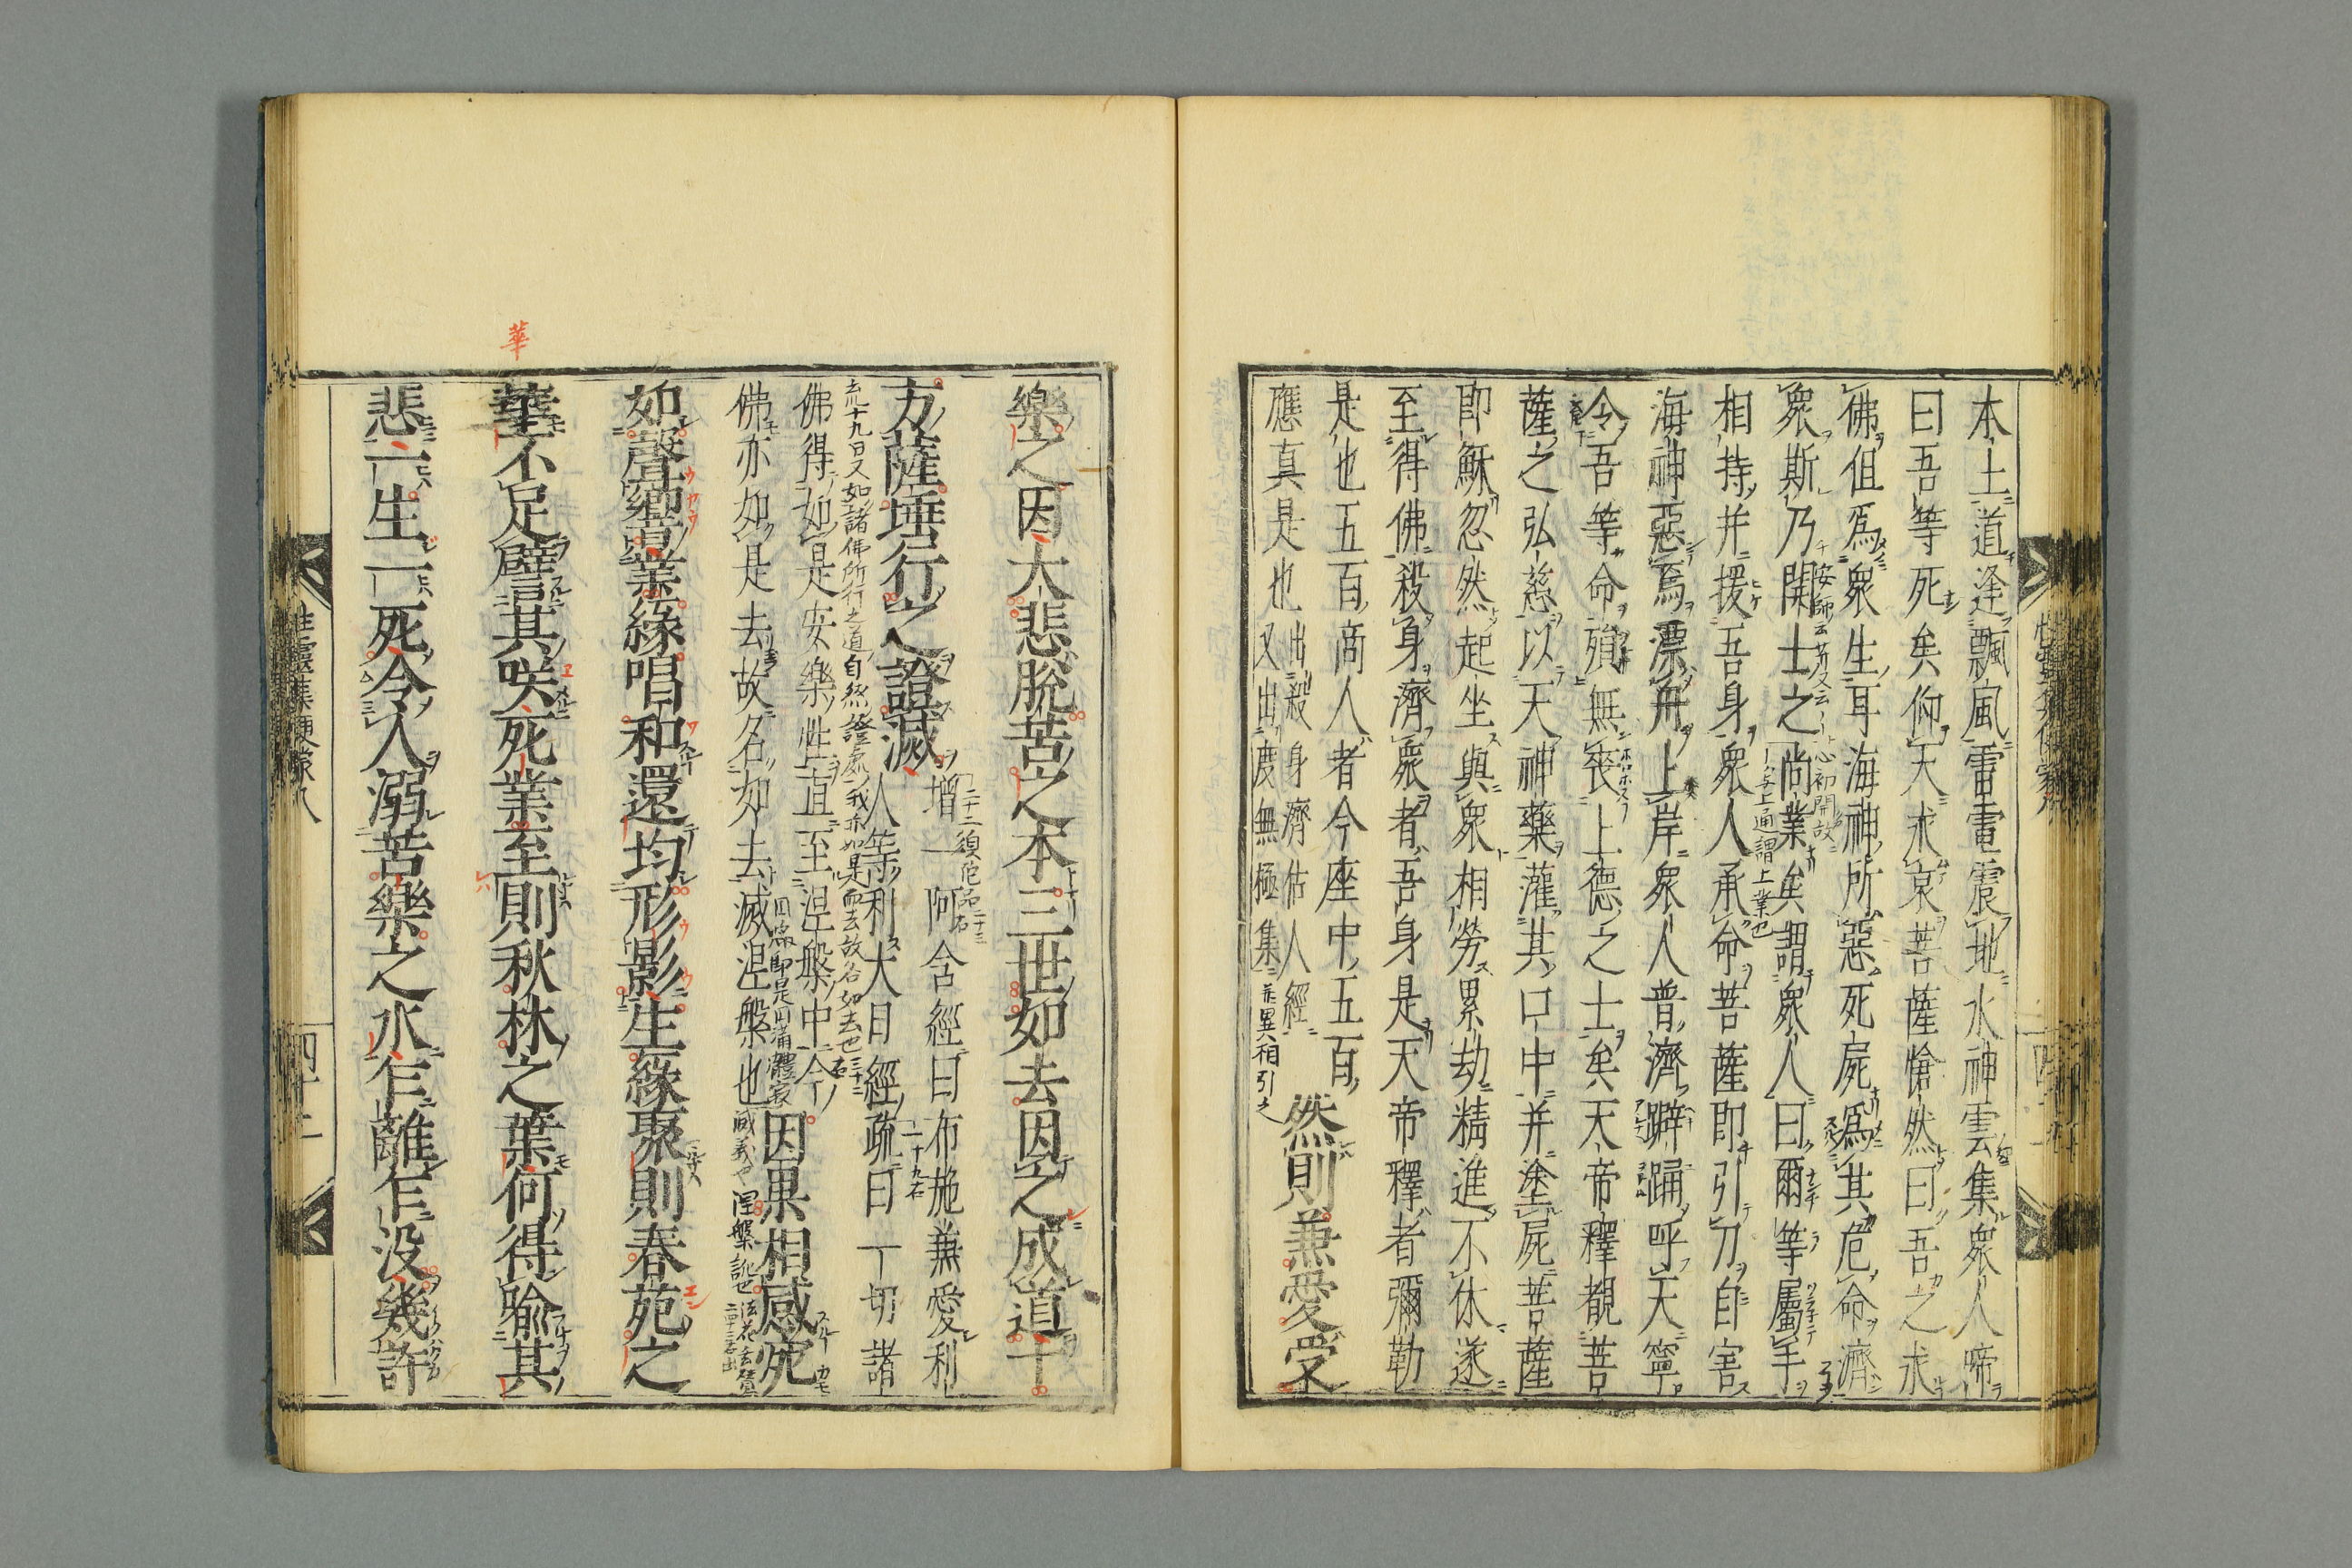 本土道逢飄風雷電震地水神雲集衆人啼
曰吾等死矣仰天求哀菩薩愴然曰吾之求
佛但爲衆生耳海神所惡死屍爲其危命濟
衆斯乃開士之尚業矣謂衆人曰爾等屬手
相持并援吾身衆人承命菩薩即引刀自害
海神惡焉漂舟上岸衆人普濟擗踊呼天寧
令吾等命殞無喪上德之士矣天帝釋覩菩
薩之弘慈以天神藥灌其口中并塗屍菩薩
即穌忽然起坐與衆相勞累劫精進不休遂
至得佛殺身濟衆者吾身是天帝釋者彌勒
是也五百商人者今座中五百
應真是也出殺身濟估人經
又出度無極集
然則兼愛受
樂之因大悲脫苦之本三世如去因之成道十
方薩埵行之證滅
增一阿含經曰布施兼愛利
人等利大日經疏曰一切諸
佛得如是安樂性直至涅槃中今
佛亦如是去故名如去滅涅槃也
因果相感宛
如聲響業緣唱和還均形影生緣聚則春苑之
華不足譬其咲死業至則秋林之葉何得喩其
悲一生一死令人溺苦樂之水乍離乍没幾許
性靈集便蒙八
四十二
華